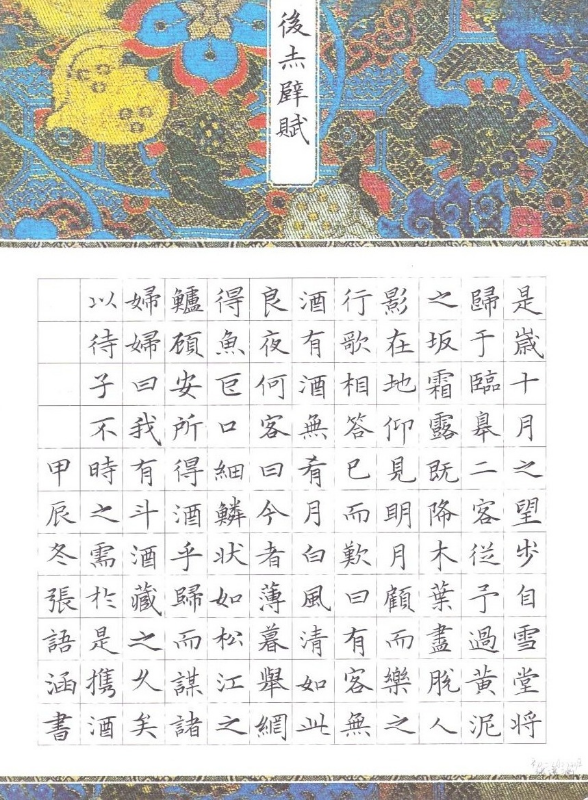 後赤壁賦
是歲十月之望步自雪堂將
歸于臨皋二客從予過黃泥
之坂霜露既降木葉盡脫人
影在地仰見明月顧而樂之
行歌相答已而歎曰有客無
酒有酒無肴月白風清如此
良夜何客曰今者薄暮舉網
得魚巨口細鱗狀如松江之
鱸頋安所得酒乎歸而謀諸
婦婦曰我有斗酒藏之久矣
以待子不時之需於是携酒
甲辰冬張語涵書